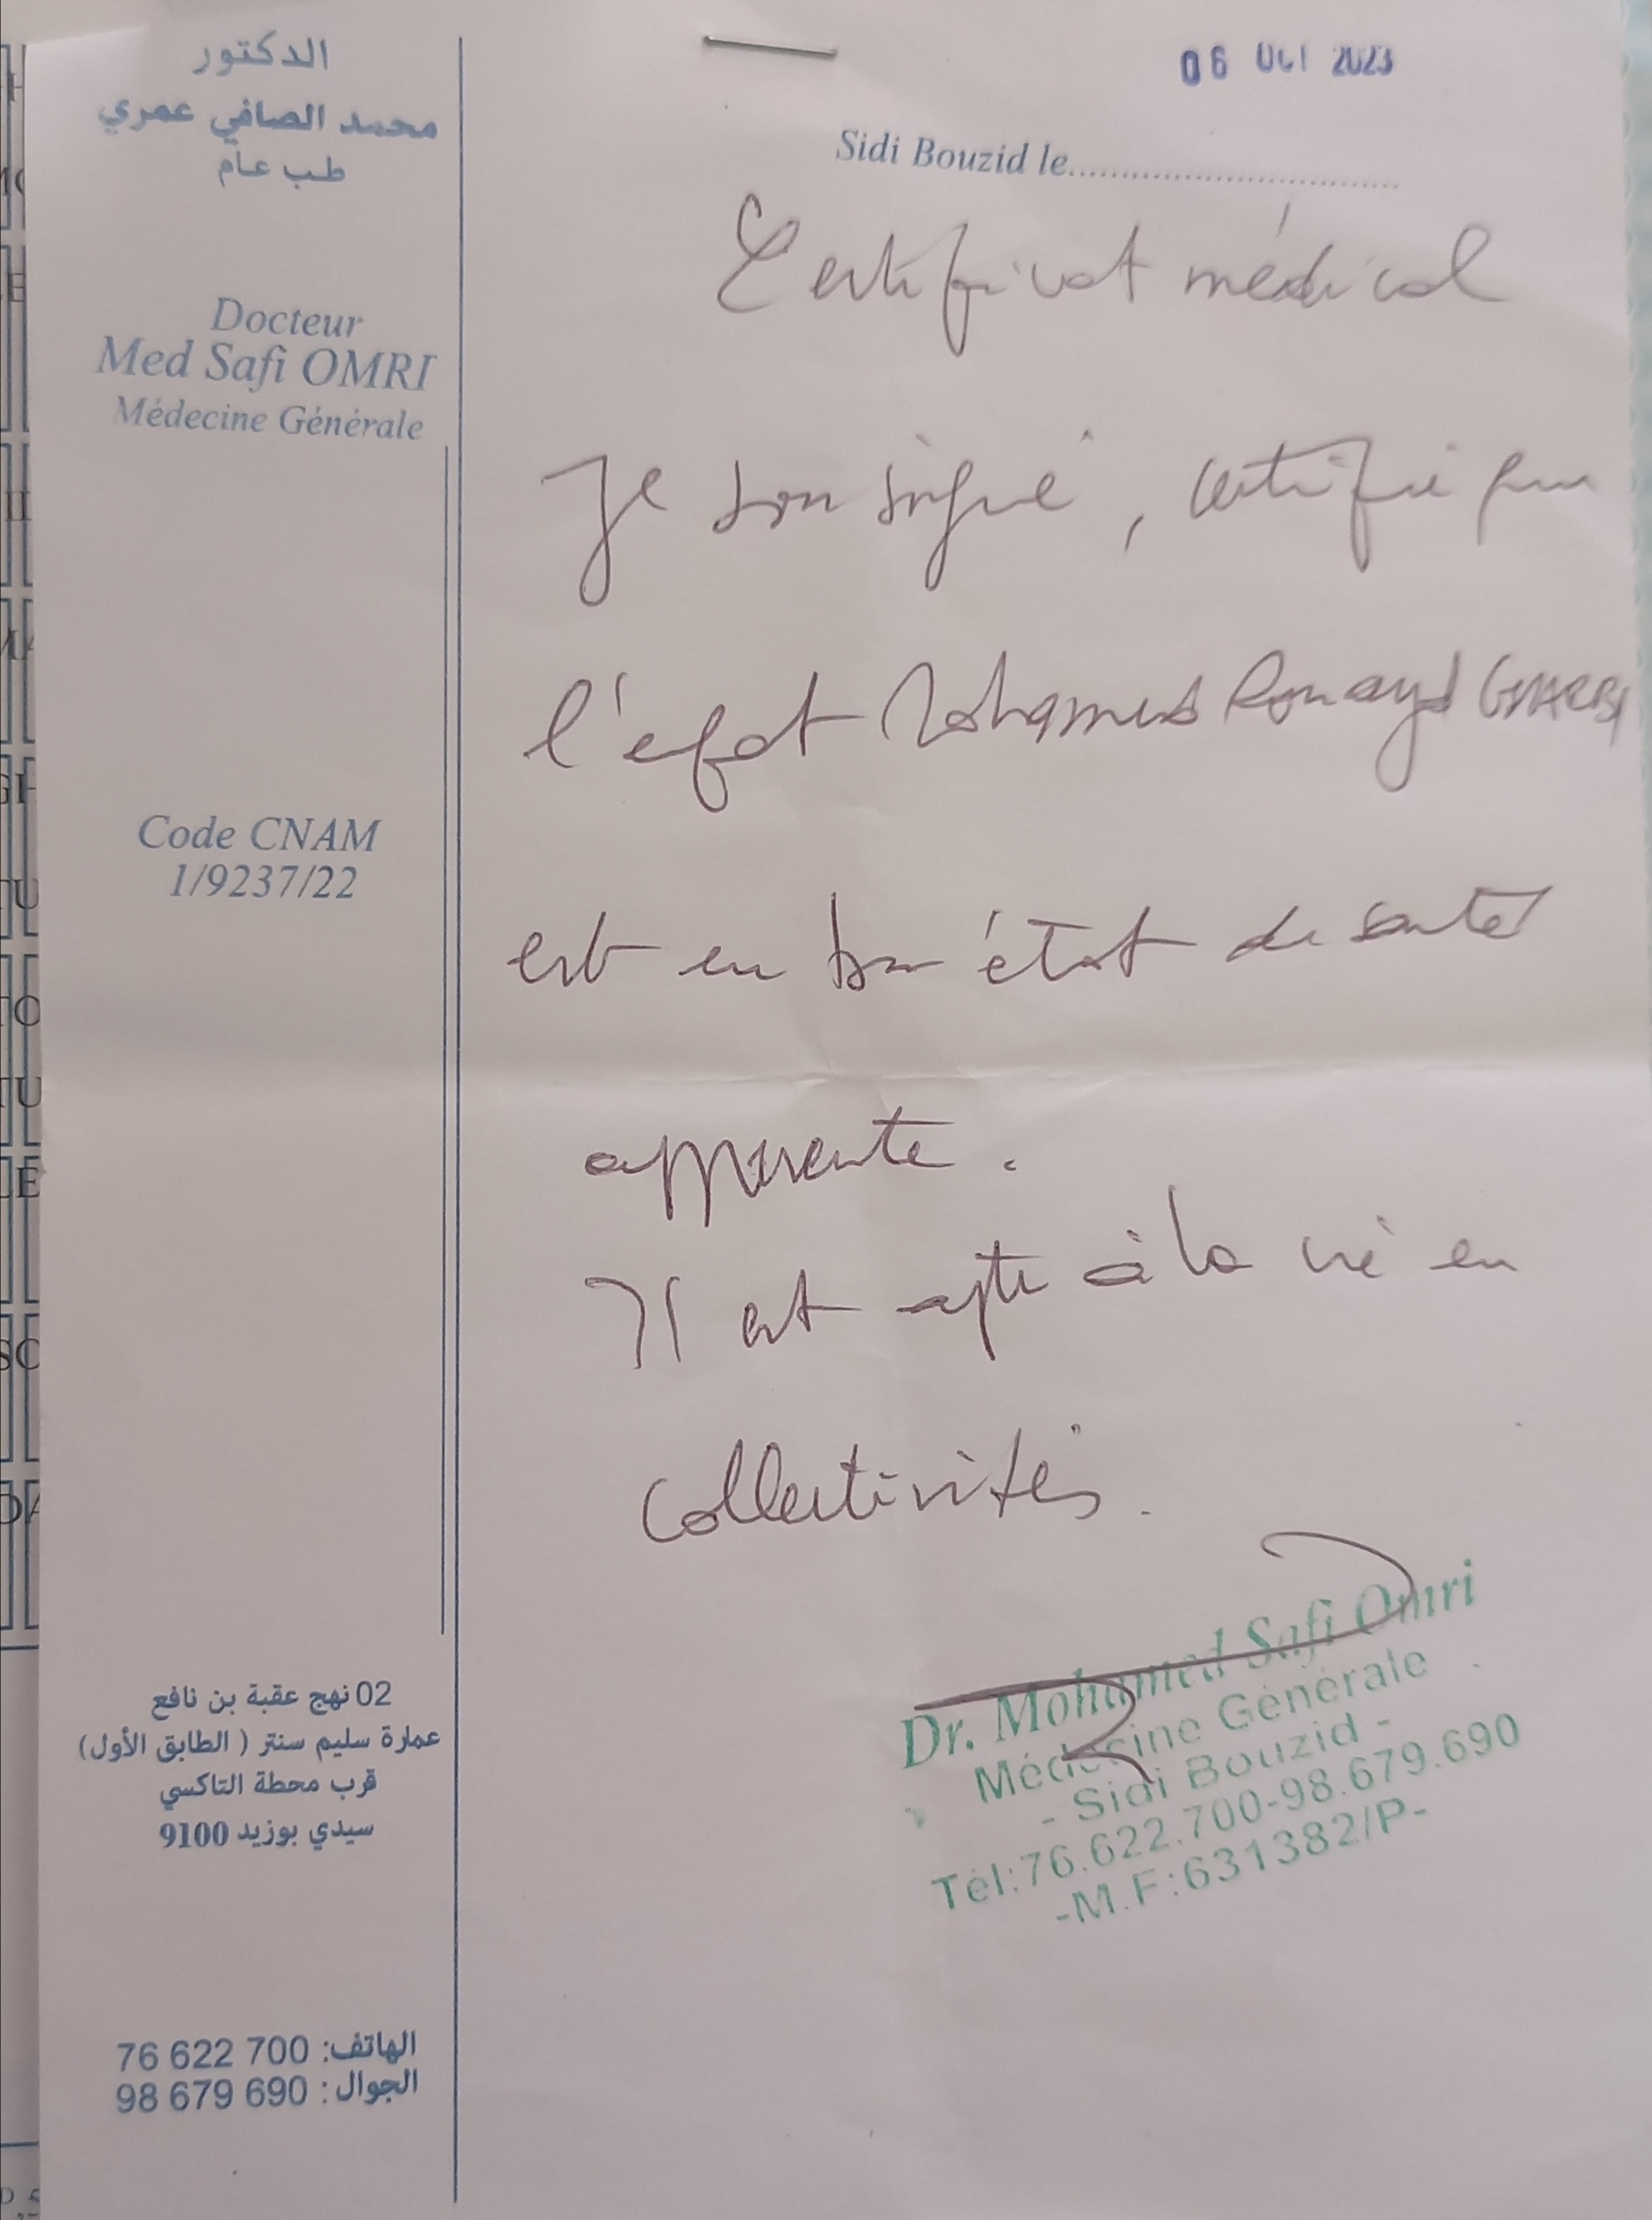 الدكتور
محمد الصافي عمري
طب عام
Docteur
Med Safi OMRI
Médecine Générale
Code CNAM
1/9237/22
02 نهج عقبة بن نافع
عمارة سليم سنتر ( الطابق الأول)
قرب محطة التاكسي
سيدي بوزيد 9100
الهاتف: 76 622 700
الجوال : 98 679 690
06 OCT 2023
Sidi Bouzid le
Certificat médical
Je sousigné, certifie que
l'efat Mohamed
est en bon état de santé
apparente.
Il est apte à la vie en
collectivités.
Dr. Mohamed Safi Omri
Médecine Générale
- Sidi Bouzid -
Tél:76.622.700-98.679.690
-M.F:631382/P-